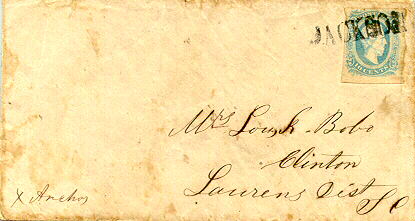 JACKSON
TEN CENTS
Mrs Bobo
Clinton
Laurens Dist S C
X Anchor